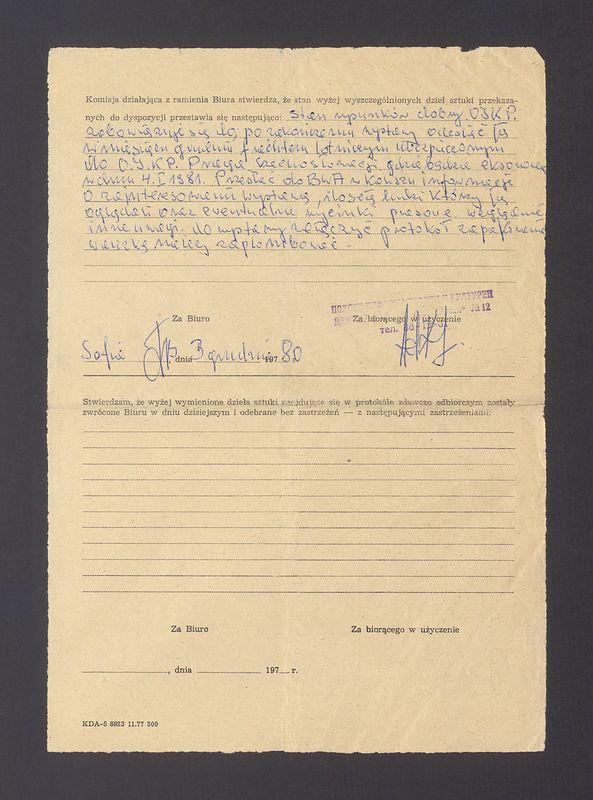 Komisja działająca z ramienia Biura stwierdza, że stan wyżej wyszczególnionych dzieł sztuki przekaza-
nych do dyspozycji przestawia się następująco: Stan rysunków dobry OIKP.
zobowiązuje się do, po zakończeniu wystawy odesłać ją
w miesiącu grudniu frachtem lotniczym ubezpieczonym
do O.I.K.P. Praga Czechosłowacji, gdzie będzie eksponowana
w dniu 4.I 1981. Przesłać do BWA końcu informację
o zainteresowaniu wystawą, ilością ludzi którzy ją
oglądali oraz ewentualne wycinki prasowe, względnie
inne uwagi. do wystawy załączyć protokół
należy zaplombować.
Za Biuro
Za biorącego w użyczenie
ПОЛСКИ КУЛТУРЕН
№ 12
тел.
Sofia dnia 3 grudnia 197 80
Stwierdzam, że wyżej wymienione dzieła sztuki znajdujące się w protokóle zdawczo odbiorczym zostały
zwrócone Biuru w dniu dzisiejszym i odebrane bez zastrzeżeń — z następującymi zastrzeżeniami:
Za Biuro
Za biorącego w użyczenie
, dnia 197 r.
KDA-5 8923 11.77 500